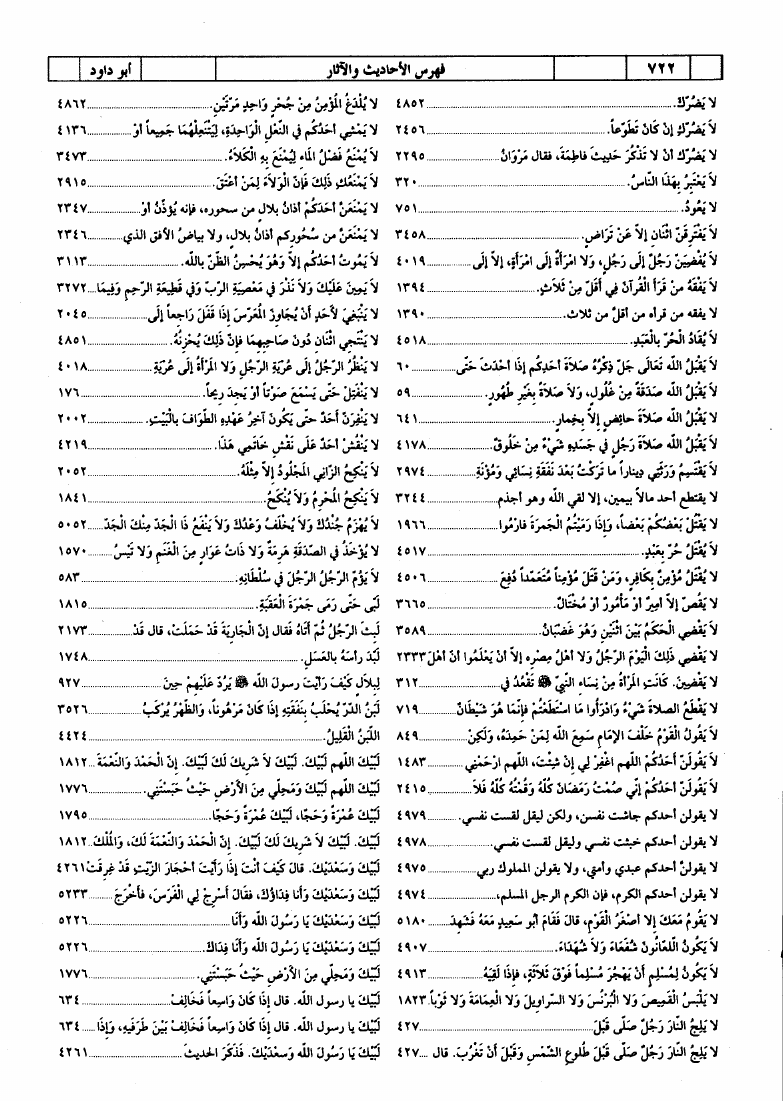 ٧٢٢ فهرس الأحاديث والآثار أبو داود
لا يَضُرّكَ. ٤٨٥٢
لاَ يَضُرّكِ إنْ كَانَ تَطَوّعاً. ٢٤٥٦
لا يَضُرّكَ أنْ لا تَذْكُرَ حَدِيثَ فاطِمَةَ، فقال مَرْوَانُ ٢٢٩٥
لاَ يَعْتَبِرُ بِهَذَا النّاسُ. ٣٢٠
لا يَعُودُ. ٧٥١
لاَ يَفْتَرِقَنّ اثْنَانِ إلاّ عَنْ تَرَاضٍ. ٣٤٥٨
لاَ يُفْضِيَنّ رَجُلٌ إلَى رَجُلٍ، وَلا امْرَأةٌ إلَى امْرَأةٍ، إلاّ إلَى ٤٠١٩
لاَ يَفْقَهُ مَنْ قَرَأ الْقُرآنَ فِي أقَلّ مِنْ ثَلاَثٍ. ١٣٩٤
لا يفقه من قرأه من أقلّ من ثلاث. ١٣٩٠
لا يُقَادُ الْحُرّ بالْعَبْدِ. ٤٥١٨
لاَ يَقْبَلُ الله تَعَالَى جَلّ ذِكْرُهُ صَلاَةَ أحَدِكُم إذَا أحْدَثَ حَتّى ٦٠
لاَ يَقْبَلُ الله صَدَقَةً مِنْ غُلُولٍ، وَلاَ صَلاَةً بِغَيْرِ طُهُورٍ. ٥٩
لاَ يَقْبَلُ الله صَلاَةَ حائِضٍ إلاّ بِخِمَارٍ. ٦٤١
لاَ يَقْبَلُ الله صَلاَةَ رَجُلٍ فِي جَسَدِهِ شَيْءٌ مِنْ خَلُوقٍ. ٤١٧٨
لاَ يَقْتَسِمُ وَرَثَتِي دِيناراً ما تَرَكْتُ بَعْدَ نَفَقَةِ نِسَائِي وَمُؤْنَةِ ٢٩٧٤
لا يقتطع أحد مالاً بيمين، إلا لقي الله وهو أجذم ٣٢٤٤
لاَ يَقْتُلْ بَعْضُكُم بَعْضاً، وَإذَا رَمَيْتُمُ الْجَمْرَةَ فَارْمُوا ١٩٦٦
لاَ يُقْتَلُ حُرّ بِعَبْدٍ. ٤٥١٧
لا يُقْتَلُ مُؤْمِنٌ بِكَافِرٍ، وَمَنْ قَتَلَ مُؤْمِناً مُتَعَمّداً دُفِعَ ٤٥٠٦
لا يَقُصّ إلاّ أمِيرٌ أوْ مَأمُورٌ أوْ مُخْتَالٌ. ٣٦٦٥
لاَ يَقْضِي الْحَكَمُ بَيْنَ اثْنَيْنِ وَهُوَ غَضْبَانُ. ٣٥٨٩
لا يَقْضِي ذَلِكَ الْيَوْمَ الرّجُلُ وَلا أهْلُ مِصْرِهِ إلاّ أنْ يَعْلَمُوا أنّ أهْلَ ٢٣٣٣
لا يَقْضِينَ. كَانَتِ الْمَرْأةُ مِنْ نِسَاءِ النّبِيّ ﷺ تَقْعُدُ في ٣١٢
لاَ يَقْطَعُ الصلاةَ شَيْءٌ وَادْرَأُوا مَا اسْتَطَعْتُمْ فإنّمَا هُوَ شَيْطَانٌ ٧١٩
لاَ يَقُولُ الْقَوْمُ خَلْفَ الإمَامِ سَمِعَ الله لِمَنْ حَمِدَهُ، وَلَكِنْ ٨٤٩
لاَ يَقُولَنّ أحَدُكُمْ اللّهم اغْفِرْ لِي إنْ شِئْتَ، اللّهم ارْحَمْنِي ١٤٨٣
لا يَقُولَنّ أحَدُكُم إنّي صُمْتُ رَمَضَانَ كُلّهُ وَقُمْتُهُ كُلّهُ فَلاَ ٢٤١٥
لا يقولن أحدكم جاشت نفسي، ولكن ليقل لقست نفسي. ٤٩٧٩
لا يقولن أحدكم خبثت نفسي وليقل لقست نفسي. ٤٩٧٨
لا يقولنّ أحدكم عبدي وأمتي، ولا يقولن المملوك ربي ٤٩٧٥
لا يقولن أحدكم الكرم، فإن الكرم الرجل المسلم، ٤٩٧٤
لا يَقُومُ مَعَكَ إلا أصْغَرُ الْقَوْمِ، قال فَقَامَ أبُو سَعِيدٍ مَعَهُ فَشَهِدَ ٥١٨٠
لاَ يَكُونُ اللّعّانُونَ شُفَعَاءَ وَلاَ شُهَدَاءَ. ٤٩٠٧
لاَ يَكُونُ لِمُسْلِمٍ أنْ يَهْجُرَ مُسْلِماً فَوْقَ ثَلاَثَةٍ، فَإذَا لَقِيَهُ ٤٩١٣
لا يَلْبَسُ الْقَمِيصَ وَلا الْبُرْنُسَ وَلا السّرَاوِيلَ وَلا الْعِمَامَةَ وَلا ثَوْباً ١٨٢٣
لاَ يَلِجُ النّارَ رَجُلٌ صَلّى قَبْلَ ٤٢٧
لاَ يَلِجُ النّارَ رَجُلٌ صَلّى قَبْلَ طُلُوعِ الشّمْسِ وَقَبْلَ أنْ تَغْرُبَ. قال ٤٢٧
لا يُلْدَغُ الْمُؤْمِنُ مِنْ جُحْرٍ وَاحِدٍ مَرّتَيْنِ. ٤٨٦٢
لا يَمْشِي أحَدُكُم في النّعْلِ الْوَاحِدَةِ، لِيَنْتَعِلْهُمَا جَمِيعاً أوْ ٤١٣٦
لاَ يُمْنَعُ فَضْلُ المَاءِ لِيُمْنَعَ بِهِ الْكَلاَءُ. ٣٤٧٣
لاَ يَمْنَعُكِ ذَلِكَ فَإنّ الْوَلاَءَ لِمَنْ أعْتَقَ. ٢٩١٥
لا يَمْنَعَنّ أحَدَكُمْ أذَانُ بلالٍ من سحوره، فإنه يُؤَذّنُ أوْ ٢٣٤٧
لا يَمْنَعَنّ من سُحُورِكم أذانُ بلالٍ، ولا بياضُ الأفق الذي ٢٣٤٦
لاَ يَمُوتُ أحَدُكُم إلاّ وَهُوَ يُحْسِنُ الظّنّ بالله. ٣١١٣
لاَ يَمِينَ عَلَيْكَ وَلاَ نَذْرَ في مَعْصِيَةِ الرّبّ وَفي قَطِيعَةِ الرّحِمِ وَفِيمَا ٣٢٧٢
لاَ يَنْبَغِي لأَحَدٍ أنْ يُجَاوِزَ المُعَرّسَ إذَا قَفَلَ رَاجِعاً إلَى ٢٠٤٥
لا يَنْتَجِي اثْنَانِ دُونَ صَاحِبِهِمَا فإنّ ذَلِكَ يُحْزِنُهُ. ٤٨٥١
لاَ يَنْظُرُ الرّجُلُ إلَى عُرْيَةِ الرّجُلِ وَلا المَرْأةُ إلَى عُرْيَةِ ٤٠١٨
لاَ يَنْفَتِلْ حَتّى يَسْمَعَ صَوْتاً أوْ يَجِدَ رِيحاً. ١٧٦
لا يَنْفِرَنّ أحَدٌ حتى يَكُونَ آخِرُ عَهْدِهِ الطّوَافَ بالْبَيْتِ. ٢٠٠٢
لا يَنْقُشْ أحَدٌ عَلَى نَقْشِ خَاتَمِي هَذَا. ٤٢١٩
لا يَنْكِحُ الزّانِي المَجْلُودُ إلاّ مِثْلَهُ. ٢٠٥٢
لاَ يَنْكِحُ الْمُحْرِمُ وَلاَ يُنْكَحُ. ١٨٤١
لاَ يُهْزَمُ جُنْدُكَ وَلاَ يُخْلَفُ وَعْدُكَ وَلاَ يَنْفَعُ ذَا الْجَدّ مِنْكَ الْجَدّ ٥٠٥٢
لا يُؤْخَذُ فِي الصّدَقَةِ هَرِمَةٌ وَلا ذَاتُ عَوَارٍ مِنَ الْغَنَمِ وَلا تَيْسُ ١٥٧٠
لاَ يَؤُمّ الرّجُلُ الرّجُلَ في سُلْطَانِهِ. ٥٨٣
لَبّى حَتّى رَمَى جَمْرَةَ الْعَقَبَةِ. ١٨١٥
لَبِثَ الرّجُلُ ثُمّ أتَاهُ فَقال إنّ الْجَارِيَةَ قَدْ حَمَلَتْ، قال قَدْ ٢١٧٣
لَبّدَ رأسَهُ بالْعَسَلِ. ١٧٤٨
لِبِلاَلٍ كَيْفَ رَأيْتَ رسولَ الله ﷺ يَرُدّ عَلَيْهِمْ حِينَ ٩٢٧
لَبَنُ الدّرّ يُحْلَبُ بِنَفَقَتِهِ إذَا كَانَ مَرْهُوناً، وَالظّهْرُ يُرْكَبُ ٣٥٢٦
اللّبَنُ الْقَلِيلُ. ٤٤٢٤
لَبّيْكَ اللّهم لَبّيْكَ. لَبّيْكَ لاَ شَرِيكَ لَكَ لَبّيْكَ. إنّ الْحَمْدَ وَالنّعْمَةَ ١٨١٢
لَبّيْكَ اللّهم لَبّيْكَ وَمَحِلّي مِنَ الأرْضِ حَيْثُ حَبَسْتَنِي. ١٧٧٦
لَبّيْكَ عُمْرَةً وَحَجّا، لَبّيْكَ عُمْرَةً وَحَجّا. ١٧٩٥
لَبّيْكَ. لَبّيْكَ لاَ شَرِيكَ لَكَ لَبّيْكَ. إنّ الْحَمْدَ وَالنّعْمَةَ لَكَ، وَالْمُلْكَ ١٨١٢
لَبّيْكَ وَسَعْدَيْكَ. قالَ كَيْفَ أنْتَ إذَا رَأيْتَ أحْجَارَ الزّيْتِ قَدْ غَرِقَتْ ٤٢٦١
لَبّيْكَ وَسَعْدَيْكَ وَأنَا فِدَاؤُكَ، فقال أسْرِجْ لِي الْفَرَسَ، فأخْرَجَ ٥٢٣٣
لَبّيْكَ وَسَعْدَيْكَ يَا رَسُولَ الله وَأنَا ٥٢٢٦
لَبّيْكَ وَسَعْدَيْكَ يَا رَسُولَ الله وَأنَا فِدَاكَ. ٥٢٢٦
لَبّيْكَ وَمَحِلّي مِنَ الأرْضِ حَيْثُ حَبَسْتَنِي. ١٧٧٦
لَبّيْكَ يا رسول الله. قال إذَا كَانَ وَاسِعاً فَخَالِفْ ٦٣٤
لَبّيْكَ يا رسول الله. قال إذَا كَانَ وَاسِعاً فَخَالِفْ بَيْنَ طَرَفَيهِ، وَإذَا ٦٣٤
لَبّيْكَ يَا رَسُولَ الله وَسَعْدَيْكَ. فَذَكَرَ الحديثَ ٤٢٦١